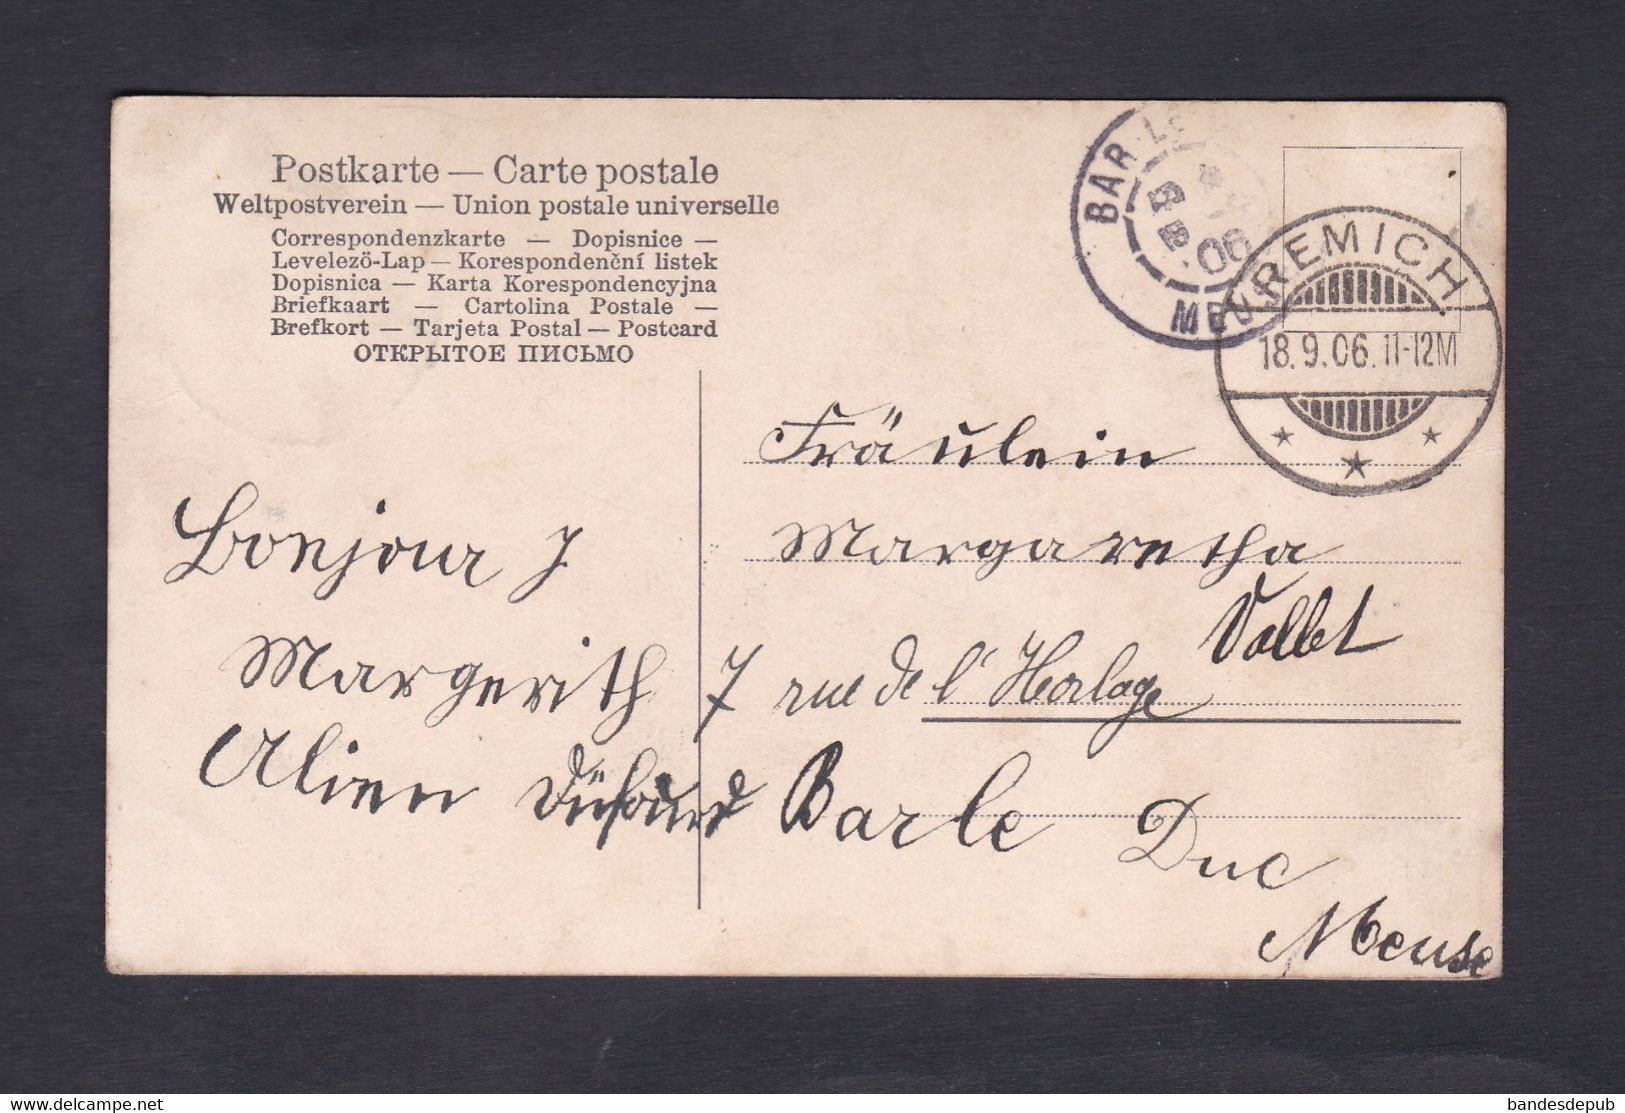 Postkarte — Carte postale
Weltpostverein — Union postale universelle
Correspondenzkarte — Dopisnice —
Levelezö-Lap — Korespondenční listek
Dopisnica — Karta Korespondencyjna
Briefkaart — Cartolina Postale —
Brefkort — Tarjeta Postal — Postcard
ОТКРЫТОЕ ПИСЬМО
BAR-LE
06
MEUSE
REMICH
18.9.06.11-12M
Fräulein
Margaretha
Vallet
7 rue de l'Horlage
Barle Duc
Meuse
Bonjour
Margerith
Alien
www.delcampe.net
bandesdepub